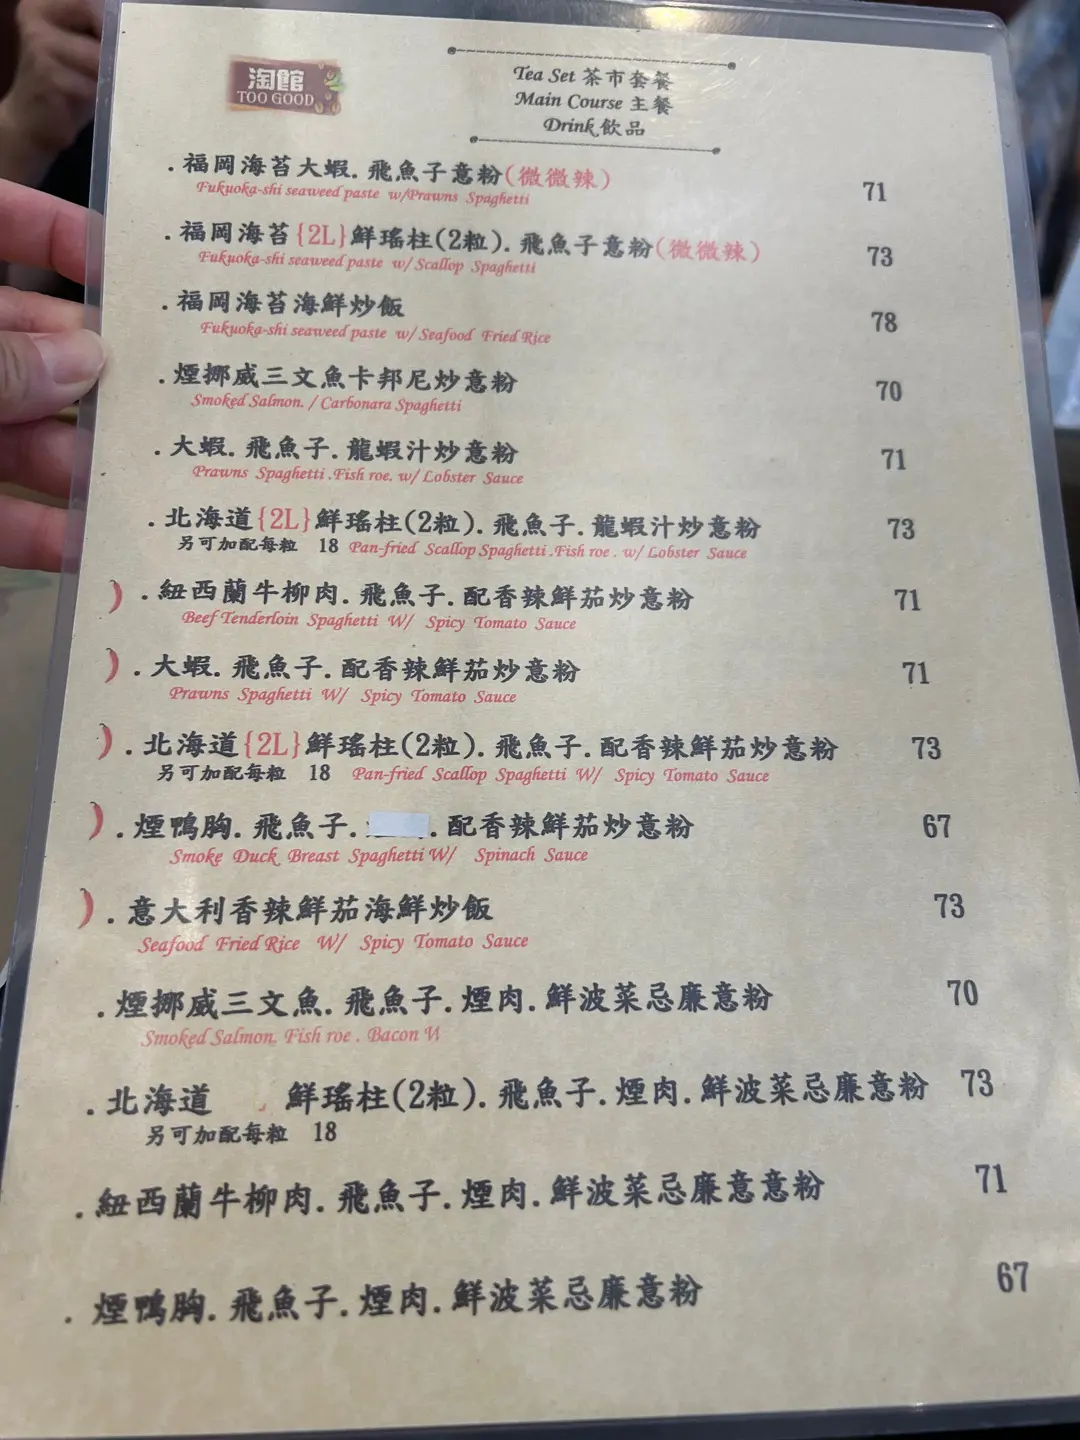 淘館
TOO GOOD
Tea Set 茶市套餐
Main Course 主餐
Drink 飲品
.福岡海苔大蝦.飛魚子意粉(微微辣) 71
Fukuoka-shi seaweed paste w/Prawns Spaghetti
.福岡海苔{2L}鮮瑤柱(2粒).飛魚子意粉(微微辣) 73
Fukuoka-shi seaweed paste w/Scallop Spaghetti
.福岡海苔海鮮炒飯 78
Fukuoka-shi seaweed paste w/Seafood Fried Rice
.煙挪威三文魚卡邦尼炒意粉 70
Smoked Salmon. / Carbonara Spaghetti
.大蝦.飛魚子.龍蝦汁炒意粉 71
Prawns Spaghetti .Fish roe. w/ Lobster Sauce
.北海道{2L}鮮瑤柱(2粒).飛魚子.龍蝦汁炒意粉 73
另可加配每粒 18 Pan-fried Scallop Spaghetti .Fish roe . w/ Lobster Sauce
.紐西蘭牛柳肉.飛魚子.配香辣鮮茄炒意粉 71
Beef Tenderloin Spaghetti W/ Spicy Tomato Sauce
.大蝦.飛魚子.配香辣鮮茄炒意粉 71
Prawns Spaghetti W/ Spicy Tomato Sauce
.北海道{2L}鮮瑤柱(2粒).飛魚子.配香辣鮮茄炒意粉 73
另可加配每粒 18 Pan-fried Scallop Spaghetti W/ Spicy Tomato Sauce
.煙鴨胸.飛魚子. .配香辣鮮茄炒意粉 67
Smoke Duck Breast Spaghetti W/ Spinach Sauce
.意大利香辣鮮茄海鮮炒飯 73
Seafood Fried Rice W/ Spicy Tomato Sauce
.煙挪威三文魚.飛魚子.煙肉.鮮波菜忌廉意粉 70
Smoked Salmon. Fish roe . Bacon W
.北海道 鮮瑤柱(2粒).飛魚子.煙肉.鮮波菜忌廉意粉 73
另可加配每粒 18
.紐西蘭牛柳肉.飛魚子.煙肉.鮮波菜忌廉意意粉 71
.煙鴨胸.飛魚子.煙肉.鮮波菜忌廉意粉 67